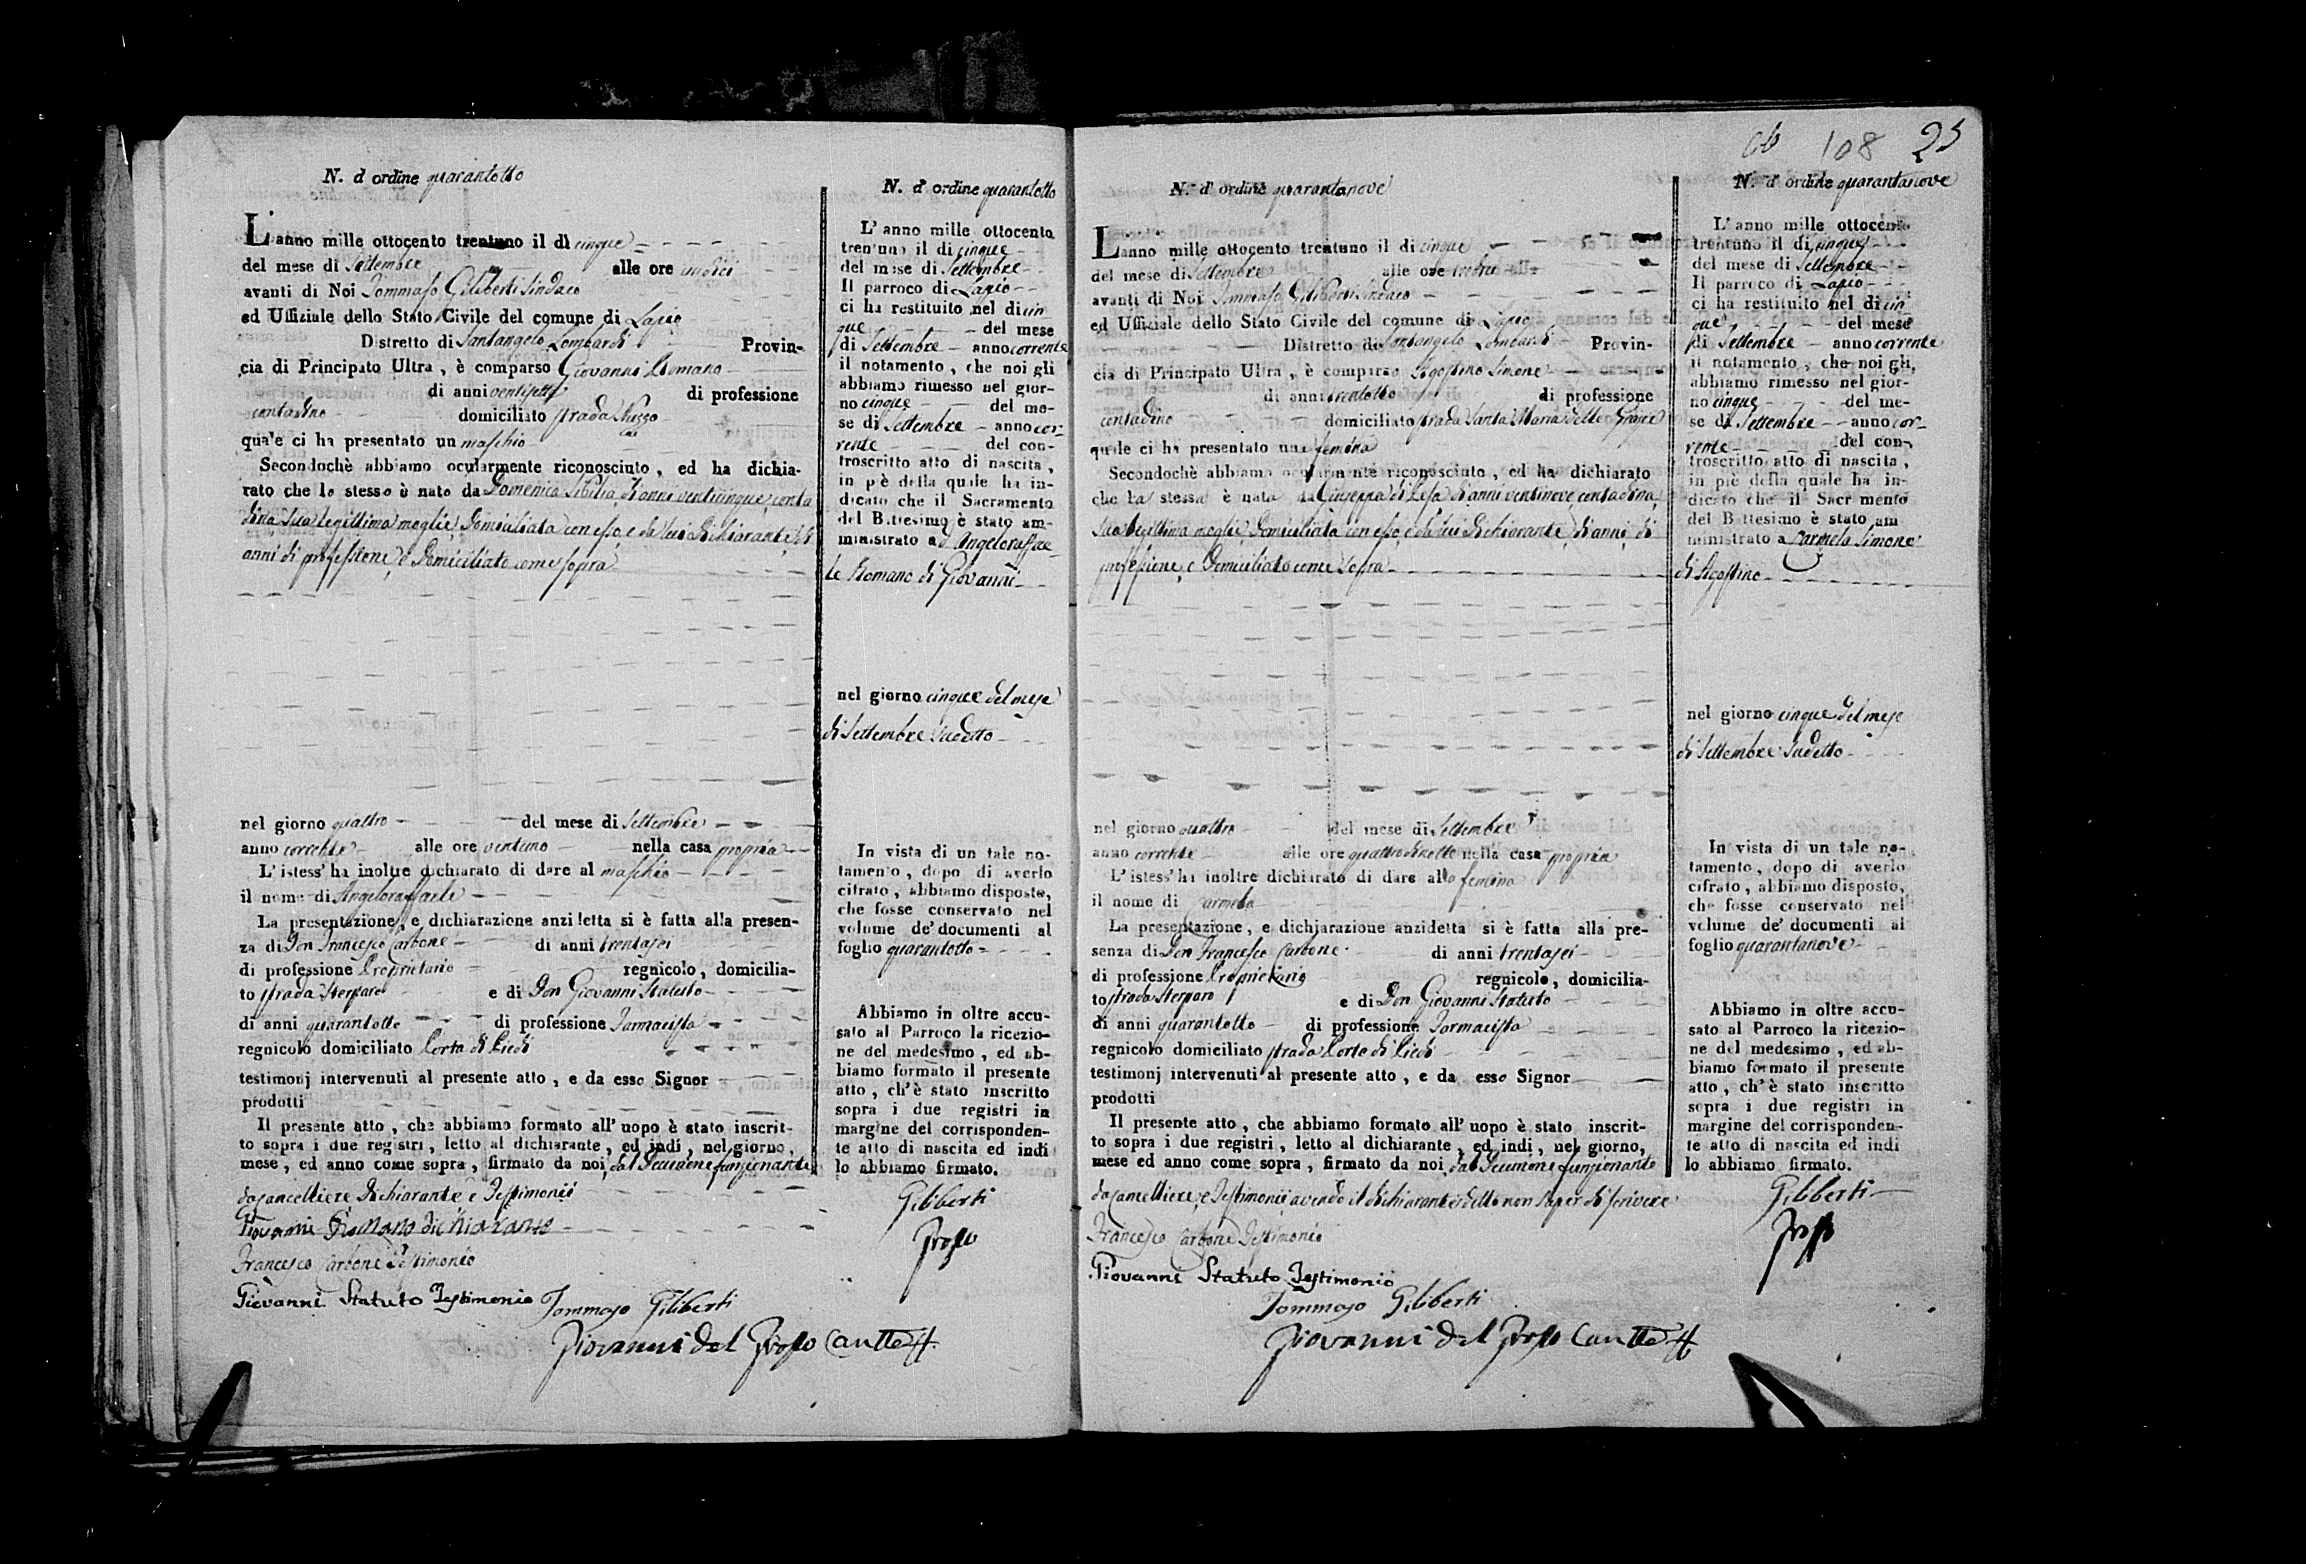 N. d'ordine quarantotto
L'anno mille ottocento trentuno il dì cinque
del mese di Settembre alle ore undici
avanti di Noi Tommaso Giliberti Sindaco
ed Uffiziale dello Stato Civile del comune di Lapio
Distretto di Santangelo Lombardi Provin-
cia di Principato Ultra, è comparso Giovanni Romano
di anni ventisette di professione
contadino domiciliato strada Nuzzo
quale ci ha presentato un maschio
Secondochè abbiamo ocularmente riconosciuto, ed ha dichia-
rato che lo stesso è nato da Domenica Sibilia, di anni venticinque, conta
dina sua legittima moglie, domiciliata con esso, e da lui dichiarante, di
anni di professione, e domiciliato come sopra
nel giorno quattro del mese di Settembre
anno corrente alle ore ventuno nella casa propria
L'istess' ha inoltre dichiarato di dare al maschio
il nome di Angeloraffaele
La presentazione, e dichiarazione anzidetta si è fatta alla presen-
za di Don Francesco Carbone di anni trentasei
di professione Proprietario regnicolo, domicilia-
to strada Sterparo e di Don Giovanni Statuto
di anni quarantotto di professione Farmacista
regnicolo domiciliato Porta di Piedi
testimonj intervenuti al presente atto, e da esso Signor
prodotti
Il presente atto, che abbiamo formato all' uopo è stato inscrit-
to sopra i due registri, letto al dichiarante, ed indi, nel giorno,
mese, ed anno come sopra, firmato da noi, dal Decurione funzionante
da Cancelliere dichiarante e Testimonii
Giovanni Romano dichiarante
Francesco Carbone Testimonio
Giovanni Statuto Testimonio
Tommaso Giliberti
Giovanni del Grosso Canttere ff.
N. d'ordine quarantotto
L'anno mille ottocento
trentuno il di cinque
del mese di Settembre
Il parroco di Lapio
ci ha restituito nel di cin
que del mese
di Settembre anno corrente
il notamento, che noi gli
abbiamo rimesso nel gior-
no cinque del me-
se di Settembre anno cor-
rente del con-
troscritto atto di nascita,
in piè della quale ha in-
dicato che il Sacramento
del Battesimo è stato am-
ministrato a d'Angeloraffae-
le Romano di Giovanni
nel giorno cinque del mese
di Settembre sudetto
In vista di un tale no-
tamento, dopo di averlo
cifrato, abbiamo disposto,
che fosse conservato nel
volume de' documenti al
foglio quarantotto
Abbiamo in oltre accu-
sato al Parroco la ricezio-
ne del medesimo, ed ab-
biamo formato il presente
atto, ch'è stato inscritto
sopra i due registri in
margine del corrisponden-
te atto di nascita ed indi
lo abbiamo firmato.
Giliberti
Grosso
108 25
N. d'ordine quarantanove
L'anno mille ottocento trentuno il di cinque
del mese di Settembre alle ore undici
avanti di Noi Tommaso Giliberti Sindaco
ed Uffiziale dello Stato Civile del comune di Lapio
Distretto di Santangelo Lombardi Provin-
cia di Principato Ultra, è comparso Agostino Simone
di anni trentotto di professione
contadino domiciliato strada Santa Maria delle Grazie
quale ci ha presentato una femina
Secondochè abbiamo ocularmente riconosciuto, ed ha dichiarato
che la stessa è nata da Giuseppa di Lesa di anni ventinove, contadina,
sua legittima moglie, domiciliata con esso, e da lui dichiarante, di anni, di
professione, e domiciliato come sopra
nel giorno quattro del mese di Settembre
anno corrente alle ore quattro di notte nella casa propria
L'istess' ha inoltre dichiarato di dare alla femina
il nome di Carmela
La presentazione, e dichiarazione anzidetta si è fatta alla pre-
senza di Don Francesco Carbone di anni trentasei
di professione Proprietario regnicolo, domicilia-
to strada Sterparo e di Don Giovanni Statuto
di anni quarantotto di professione Farmacista
regnicolo domiciliato strada Porta di Piedi
testimonj intervenuti al presente atto, e da esso Signor
prodotti
Il presente atto, che abbiamo formato all' uopo è stato inscrit-
to sopra i due registri, letto al dichiarante, ed indi, nel giorno,
mese ed anno come sopra, firmato da noi, dal Decurione funzionante
da Cancelliere, e Testimonii avendo il dichiarante detto non saper di scrivere
Francesco Carbone Testimonio
Giovanni Statuto Testimonio
Tommaso Giliberti
Giovanni del Grosso Canttere ff.
N. d'ordine quarantanove
L'anno mille ottocento
trentuno il di cinque
del mese di Settembre
Il parroco di Lapio
ci ha restituito nel di cin
que del mese
di Settembre anno corrente
il notamento, che noi gli
abbiamo rimesso nel gior-
no cinque del me-
se di Settembre anno cor-
rente del con-
troscritto atto di nascita,
in piè della quale ha in-
dicato che il Sacramento
del Battesimo è stato am
ministrato a Carmela Simone
di Agostino
nel giorno cinque del mese
di Settembre sudetto
In vista di un tale no-
tamento, dopo di averlo
cifrato, abbiamo disposto,
che fosse conservato nel
volume de' documenti al
foglio quarantanove
Abbiamo in oltre accu-
sato al Parroco la ricezio-
ne del medesimo, ed ab-
biamo formato il presente
atto, ch'è stato inscritto
sopra i due registri in
margine del corrisponden-
te atto di nascita ed indi
lo abbiamo firmato.
Giliberti
Grosso